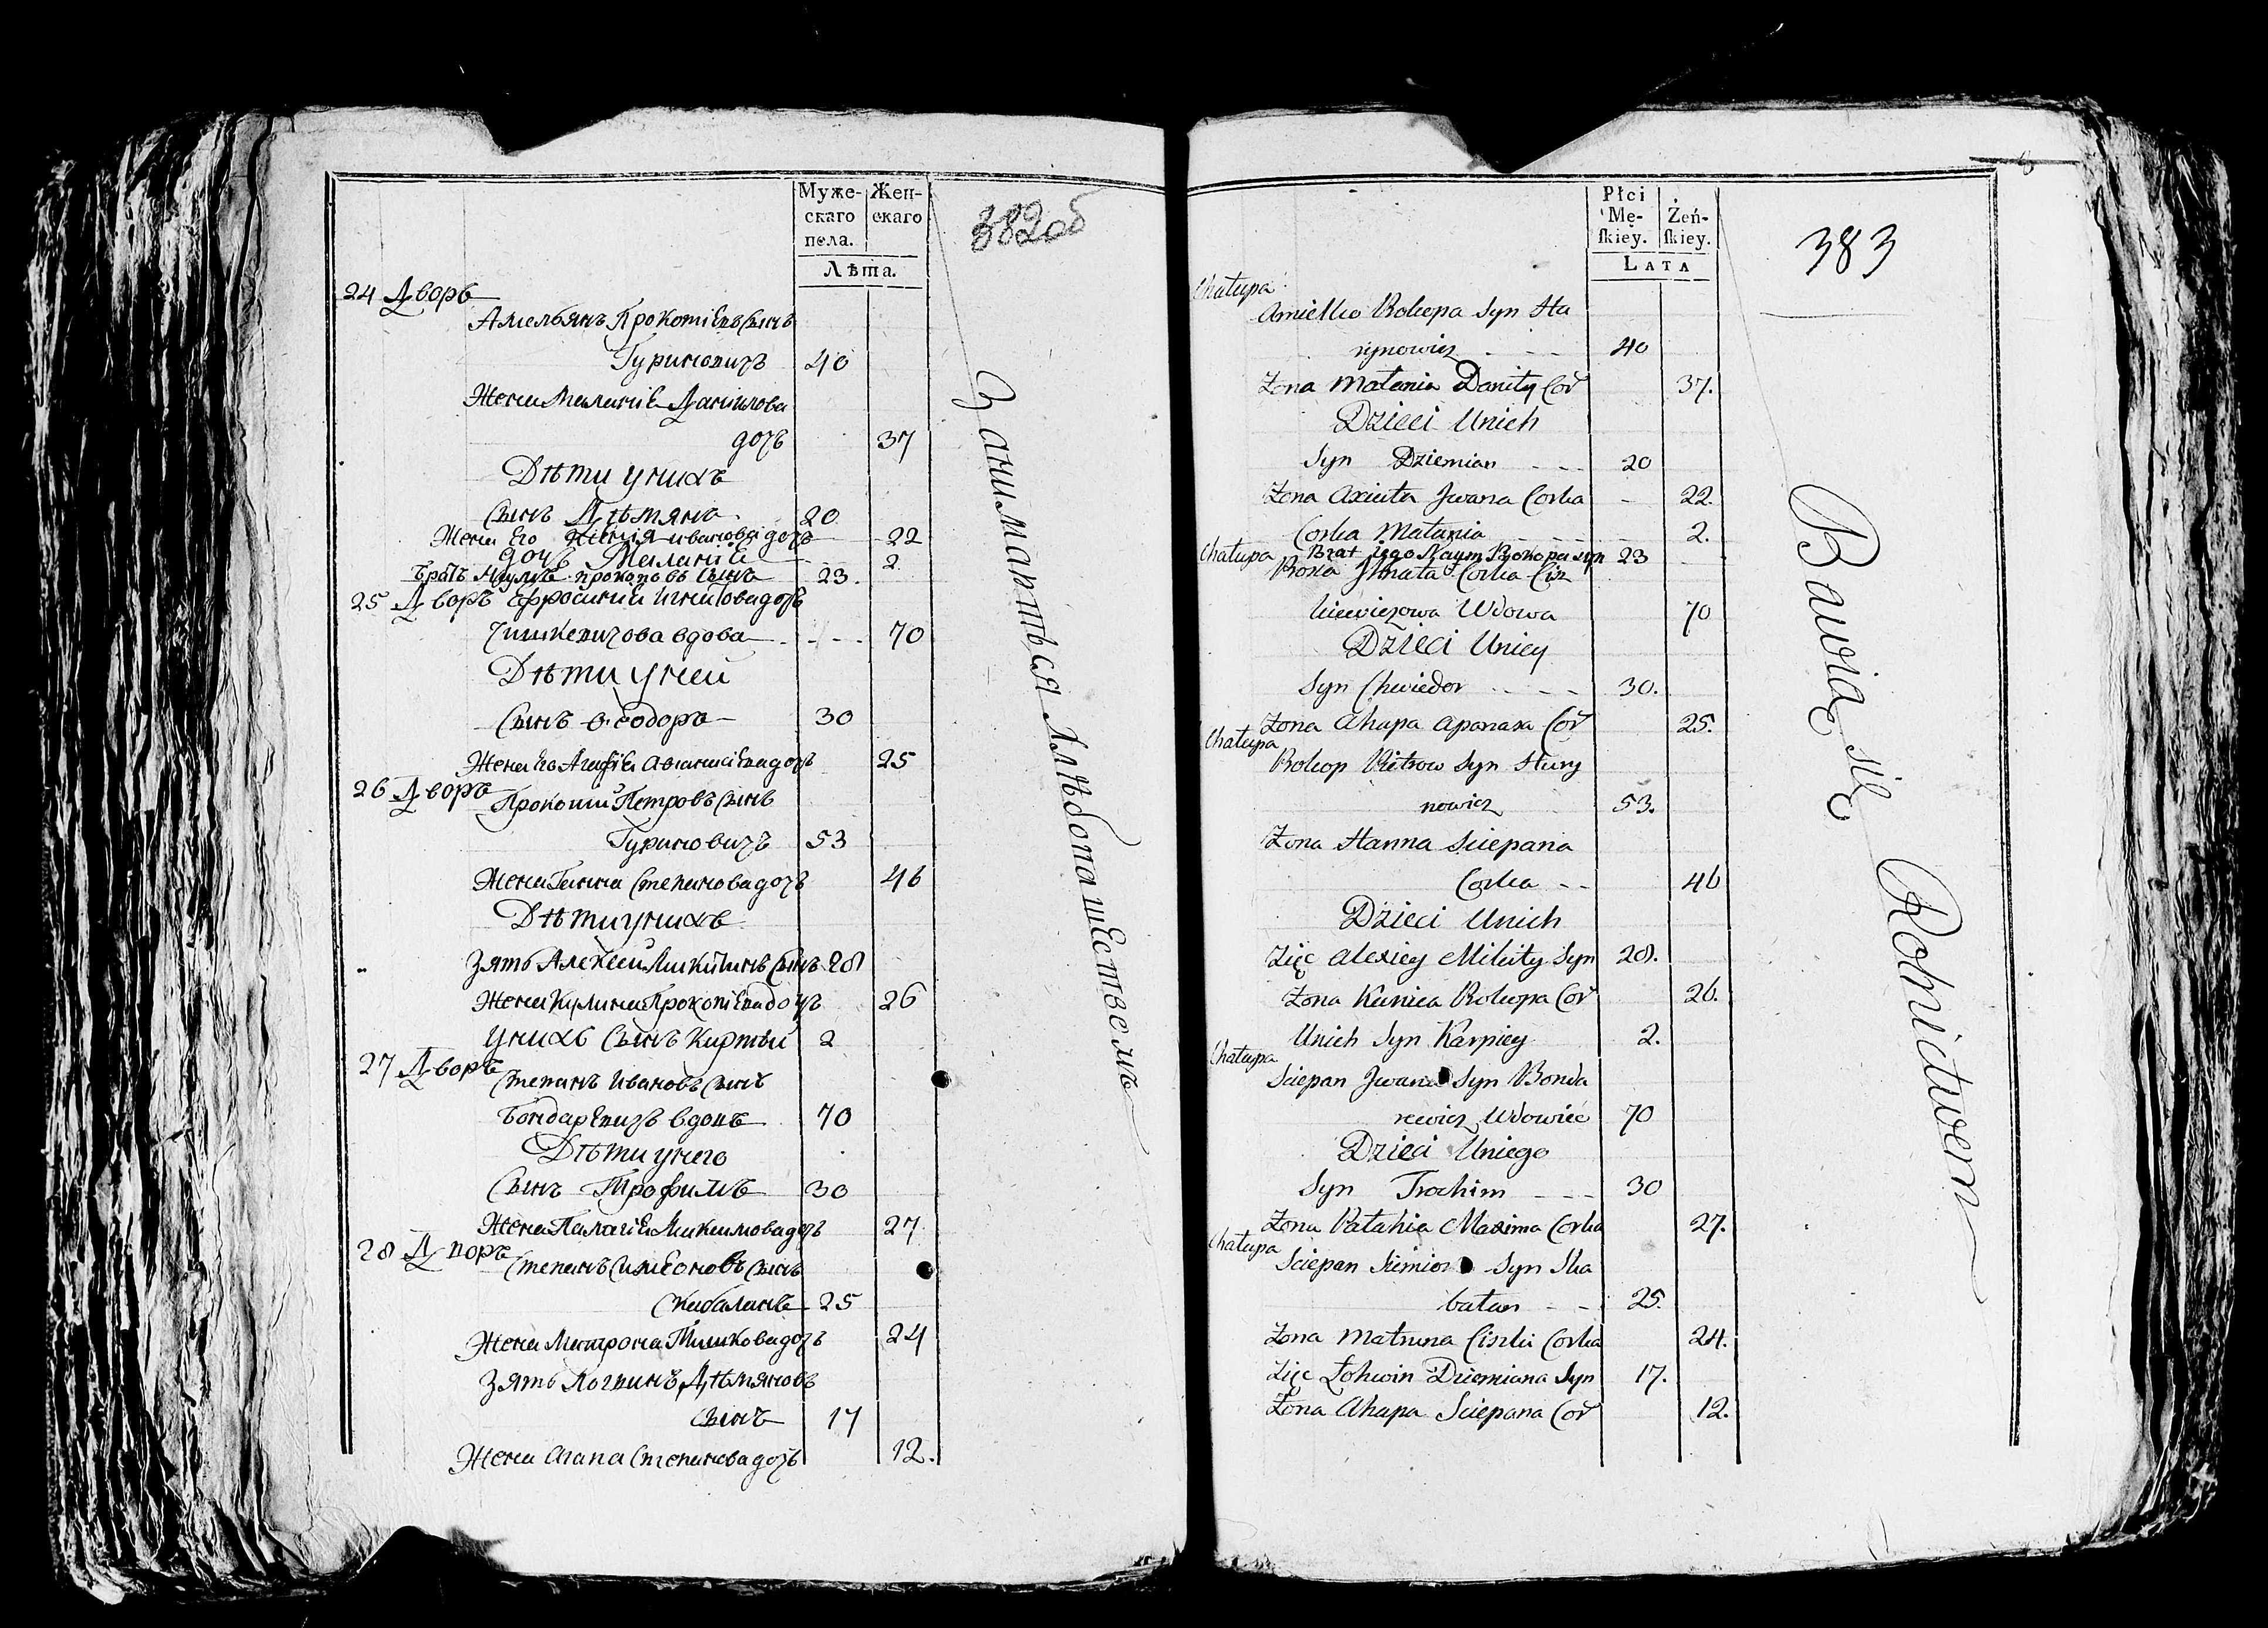 Муже-
скаго
пола.
Жен-
скаго
Лѣта.
382об
24 Дворъ
Амельянъ Прокопіевъ сынъ
Гуриновичъ 40
Жена Меланіе Данилова
дочь 37
Дѣти у нихъ
Сынъ Дѣмянъ 20
Жена Его Ксенія иванова дочь 22
дочь Меланіе 2
Братъ Наумъ прокоповъ сынъ 23.
25 Дворъ Ефросиніе Игнатова дочь
Тишкевичова вдова 70
Дѣти у ней
Сынъ Ѳеодоръ 30
Жена Его Агафіе Афанасіева дочь 25
26 Дворъ
Прокопій Петровъ сынъ
Гуриновичъ 53
Жена Ганна Степанова дочь 46
Дѣти у нихъ
Зять Алексей Микитинъ сынъ 28
Жена Кулина Прокопіева дочь 26
у нихъ Сынъ Карпѣй 2
27 Дворъ
Степанъ Ивановъ сынъ
Бондаревичъ вдовъ 70
Дѣти у него
Сынъ Трофимъ 30
Жена Палагіе Максимова дочь 27
28 Дворъ
Степанъ Симеоновъ сынъ
Скабаланъ 25
Жена Матрона Тишкова дочь 24
Зять Логвинъ Дѣмяновъ
сынъ 17
Жена Агапа Степанова дочь 12.
Занимаются Хлѣбопашествомъ
Płci
Mę-
skiey.
Żeń-
skiey.
LATA
383
Chałupa
Amielko Prokopa Syn Hu
rynowicz 40
Żona Małania Daniły Cor 37.
Dzieci Unich
Syn Dziemian 20
Żona Axiuta Jwana Corka 22.
Corka Małania 2.
Brat jego Naum Prokopa syn 23
Chałupa
Proxa Jhnata Corka Cisz
kiewiczowa Wdowa 70
Dzieci Uniey
Syn Chwiedor 30.
Żona Ahapa Apanasa Cor 25.
Chałupa
Prokop Pietrow Syn Hury
nowicz 53.
Żona Hanna Sciepana
Corka 46
Dzieci Unich
Zięc Alexiey Mikity Syn 28.
Żona Kulina Prokopa Cor 26.
Unich Syn Karpiey 2.
Chałupa
Sciepan Jwana Syn Bonda
rewicz Wdowiec 70
Dzieci Uniego
Syn Trochim 30
Żona Pałahia Maxima Corka 27.
Chałupa
Sciepan Siemion Syn Ska
bałan 25.
Żona Matruna Ciszki Corka 24.
Zięc Łohwin Dziemiana Syn 17.
Żona Ahapa Sciepana Cor 12.
Bawią się Rolnictwem